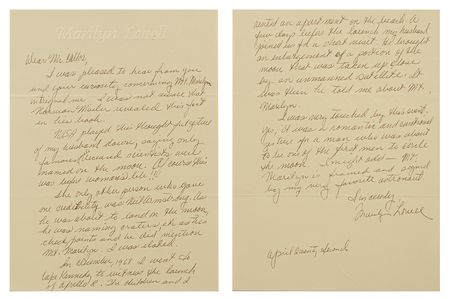 Marilyn Lovell
Dear Mr. Callos,
I was pleased to hear from you
and your curiosity concerning Mt. Marilyn
intrigued me. I was not aware that
Norman Mailer revealed this fact
in his book.
NASA played this thoughtful gesture
of my husband down, saying only
famous deceased scientists were
named on the moon. Of course this
was before women's lib!!!
The only other person who gave
me credibility was Neil Armstrong. As
he was about to land on the moon,
he was naming craters, etc. as his
check points and he did mention
Mt. Marilyn. I was elated.
In December, 1968 I went to
Cape Kennedy, to witness the launch
of Apollo 8. The children and I
rented an apartment on the beach. A
few days before the launch my husband
joined us for a short visit. He brought
an enlargement of a portion of the
moon that was taken up close
by an unmanned satellite. It
was then he told me about Mt.
Marilyn.
I was very touched by this event.
Yes, it was a romantic and emotional
gesture for a man who was about
to be one of the first men to circle
the moon. I might add - Mt.
Marilyn is framed and signed
by my very favorite astronaut.
Sincerely,
Marilyn Lovell
April twenty seventh